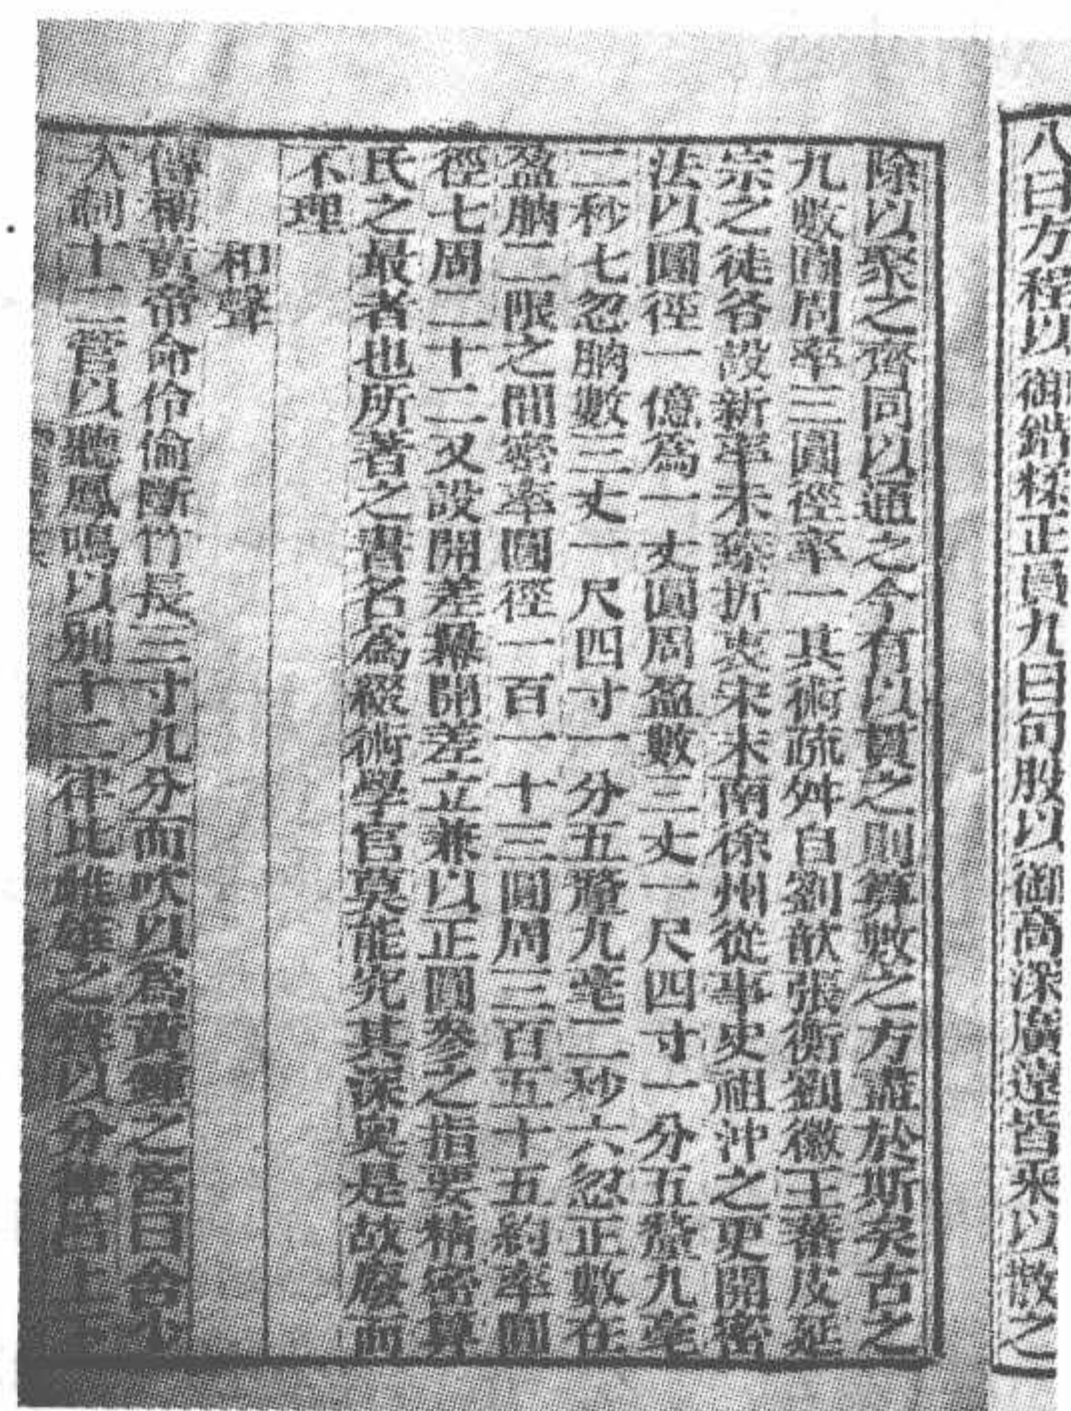 八曰方程以御錯糅正員九曰句股以御高深廣遠皆乘以散之
除以聚之齊同以通之今有以貫之則算數之方盡於斯矣古之
九數圓周率三圓徑率一其術疏舛自劉歆張衡劉徽王蕃皮延
宗之徒各設新率未臻折衷宋末南徐州從事史祖沖之更開密
法以圓徑一億為一丈圓周盈數三丈一尺四寸一分五釐九毫
二秒七忽朒數三丈一尺四寸一分五釐九毫二秒六忽正數在
盈朒二限之間密率圓徑一百一十三圓周三百五十五約率圓
徑七周二十二又設開差冪開差立兼以正圓參之指要精密算
氏之最者也所著之書名為綴術學官莫能究其深奧是故廢而
不理
和聲
傳稱黃帝命伶倫斷竹長三寸九分而吹以為黃鍾之宮曰含少
次制十二管以聽鳳鳴以別十二律比雌雄之聲以分律呂上下